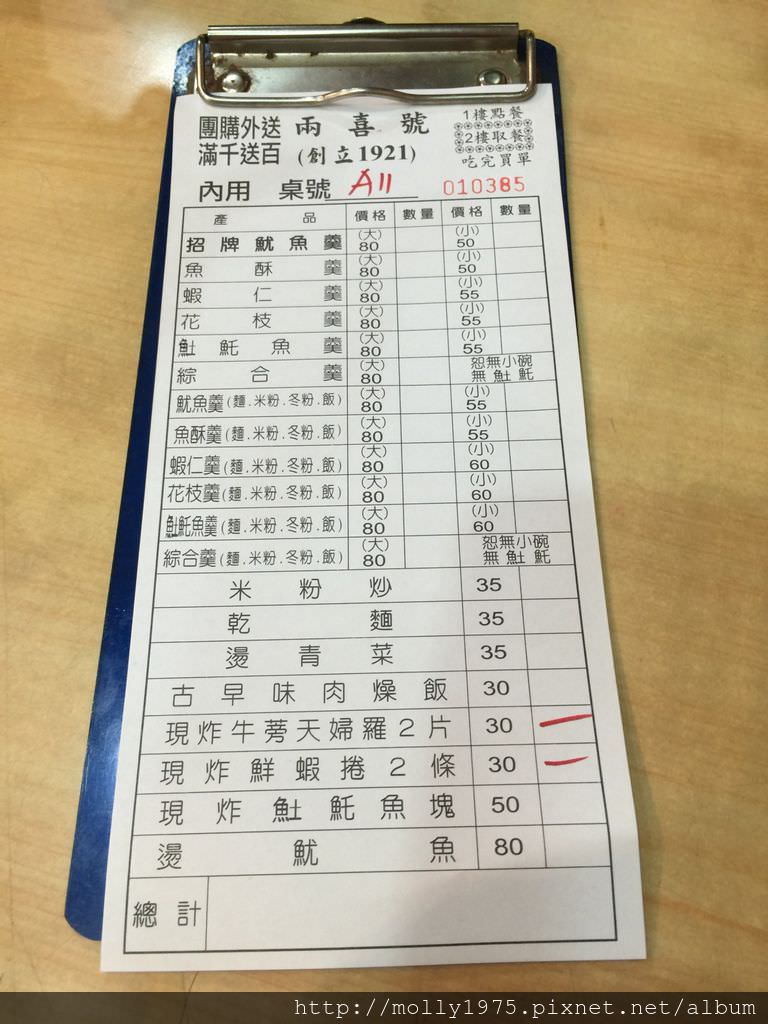 團購外送 兩喜號 1樓點餐
滿千送百 (創立1921) 2樓取餐
吃完買單
內用 桌號 A11 010385
產品 價格 數量 價格 數量
招牌魷魚羹 (大) 80 (小) 50
魚酥羹 (大) 80 (小) 50
蝦仁羹 (大) 80 (小) 55
花枝羹 (大) 80 (小) 55
𩵚魠魚羹 (大) 80 (小) 55
綜合羹 (大) 80 恕無小碗 無𩵚魠
魷魚羹(麵.米粉.冬粉.飯) (大) 80 (小) 55
魚酥羹(麵.米粉.冬粉.飯) (大) 80 (小) 55
蝦仁羹(麵.米粉.冬粉.飯) (大) 80 (小) 60
花枝羹(麵.米粉.冬粉.飯) (大) 80 (小) 60
𩵚魠魚羹(麵.米粉.冬粉.飯) (大) 80 (小) 60
綜合羹(麵.米粉.冬粉.飯) (大) 80 恕無小碗 無𩵚魠
米粉炒 35
乾麵 35
燙青菜 35
古早味肉燥飯 30
現炸牛蒡天婦羅2片 30 一
現炸鮮蝦捲2條 30 一
現炸𩵚魠魚塊 50
燙魷魚 80
總計
http://molly1975.pixnet.net/album